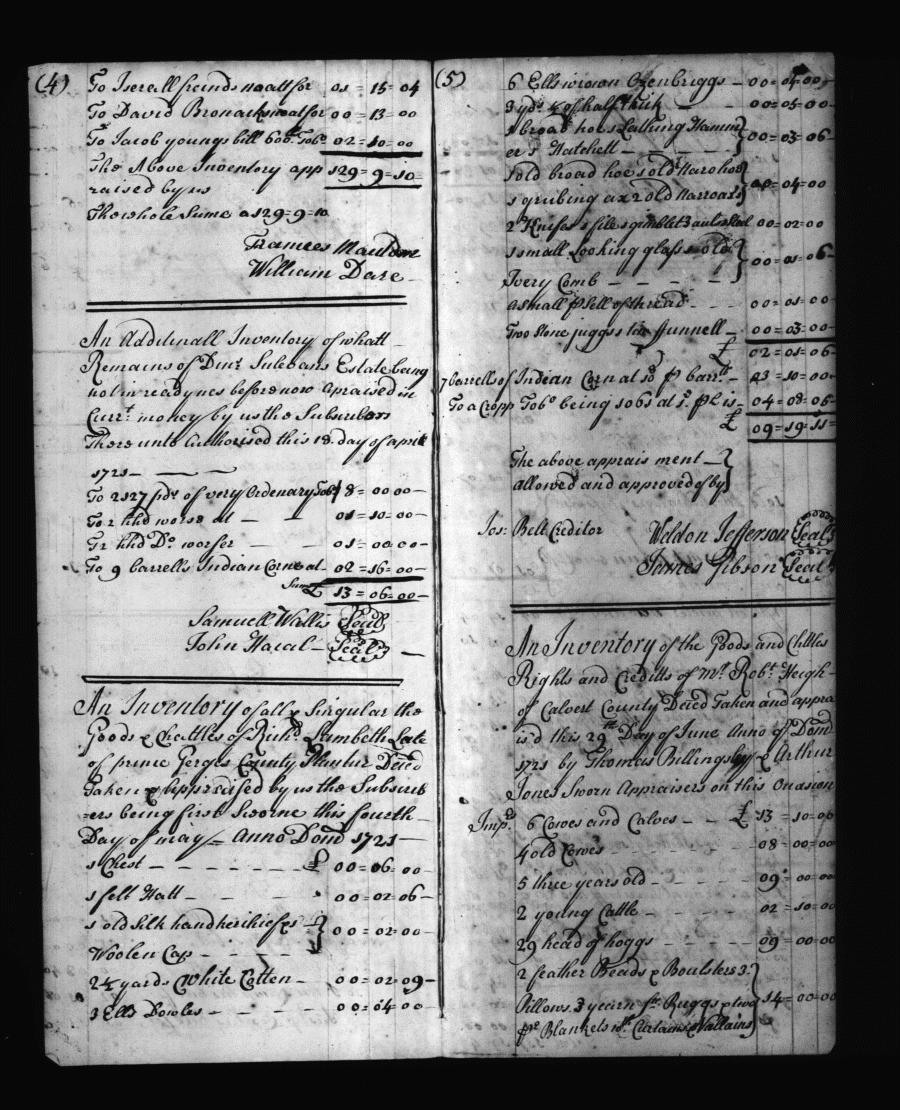 (4)
To Iserall freinds noatt for 01 = 15 = 04
To David Bronacks noatt for 00 = 13 = 00
To Jacob youngs bill 600: Tobo 02 = 10 = 00
The Above Inventory app 129 = 9 = 10
raised by us
The whole Sume a 129 = 9 = 10
Frances
William Dare
An Additinall Inventory of whatt
Remains of Danl. Estate being
not in readynes before now Apraised in
Curr.t money by us the Subscribers
There unto Authorised this 18 day of april
1721
To 2127 pds of very Ordenary Tob.o 8 = 00 00
To 1 hhd worse at 01 = 10 = 00
To 1 hhd Do. worser 01 = 00 00
To 9 barrells Indian Corne at 02 = 16 = 00
Sum £ 13 = 06 = 00
Samuell Wallis Seal
John Seal
An Inventory of all & Singular the
Goods & Chattles of Richd. Lambeth Late
of prince Gerges County Planter Deced
Taken & Appraised by us the Subscrib
=ers being first Sworne this fourth
Day of may Anno Dom 1721
1 Chest £ 00 = 06 = 00
1 felt Hatt 00 = 02 = 06
1 old Silk handkerchief &
Woolen Cap 00 = 02 = 00
2½ yards White Cotten 00 = 02 = 09
3 Ells Dowles 00 = 04 = 00
(5)
6 Ells Ozenbriggs 00 = 04 = 00
3 yds ½ of half thick 00 = 05 = 00
1 broad hoe 1 Lathing Hamm
er 1 Hatchell 00 = 03 = 06
1 old broad hoe 1 old Naro hoe
1 gruibing ax 2 old Narro ax 00 = 04 = 00
2 Knifes 1 file 1 gimblet 3 auls 00 = 02 = 00
1 small Looking glass 1 old
Ivery Comb 00 = 01 = 06
a small psell of thread 00 = 01 = 00
Two Stone juggs 1 tin funnell 00 = 03 = 00
£ 02 = 01 = 06
7 barrells of Indian Corn at 10 p barrll 03 = 10 = 00
To a Cropp Tobo being 1061 at 1d. p £ is 04 = 08 = 05
£ 09 = 19 = 11
The above apprais ment
allowed and approved of by
Jos: Belt Creditor
Weldon Jefferson Seal
James Gibson Seal
An Inventory of the Goods and Chttles
Rights and Creditts of Mr. Robt. Heigh
of Calvert County Deced Taken and appra
is'd this 29th Day of June Anno of Dom
1721 by Thomas Billingsly & Arthur
Jones Sworn Appraisers on this Ocasion
Imps. 6 Cowes and Calves £ 13 = 10 = 00
4 old Cowes 08 = 00 = 00
5 three years old 09 = 00 = 00
2 young Cattle 02 = 10 = 00
29 head of hoggs 09 = 00 = 00
2 feather Beads & Boulsters 3
Pillows 3 Ruggs & two
pr Blankets wt. Curtains & Vallains 14 = 00 = 00